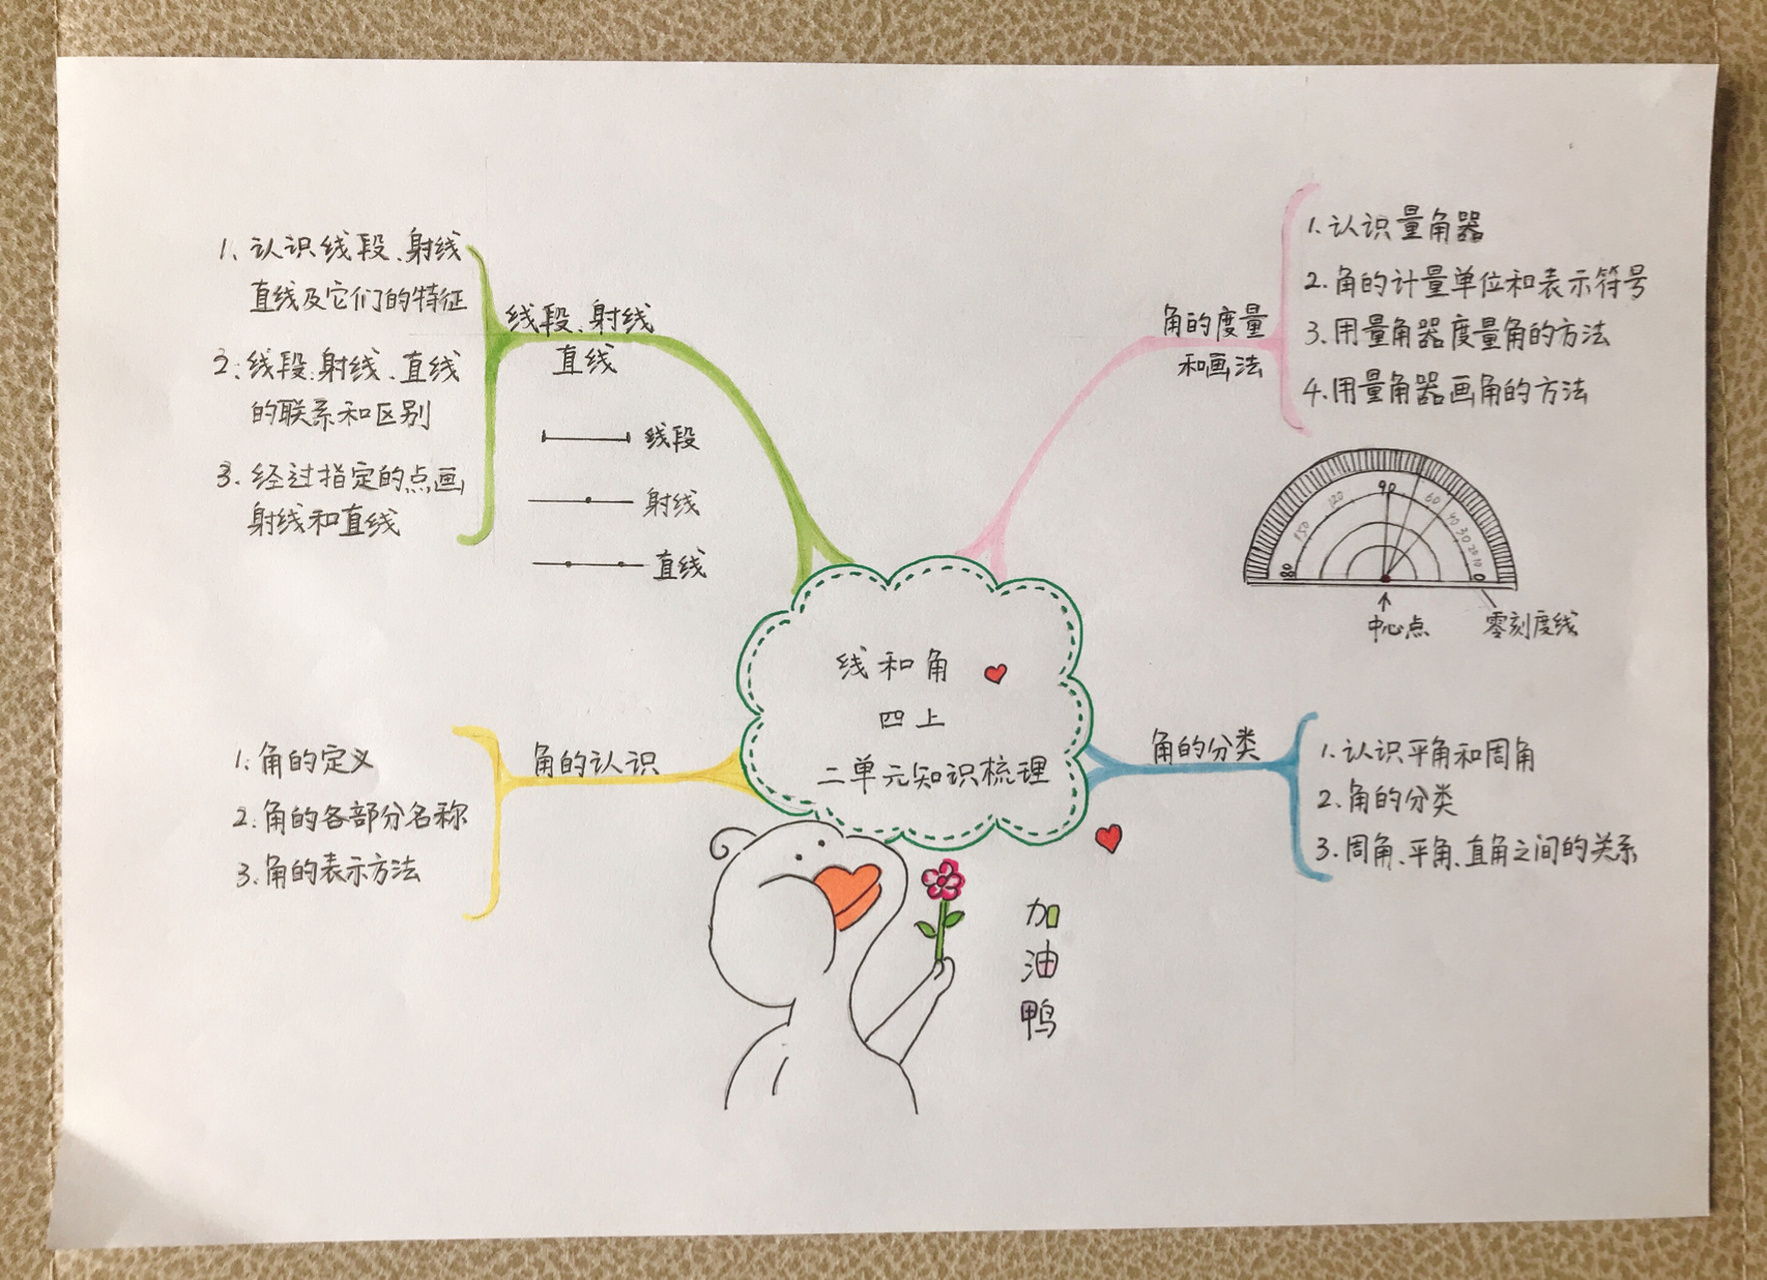 1、认识线段、射线
直线及它们的特征
2.线段.射线、直线
的联系和区别
3.经过指定的点画
射线和直线
线段、射线
直线
线段
射线
直线
角的度量
和画法
1.认识量角器
2.角的计量单位和表示符号
3.用量角器度量角的方法
4.用量角器画角的方法
90
120
60
150
40
30
20
10
180
0
中心点
零刻度线
线和角
四上
二单元知识梳理
角的认识
1.角的定义
2.角的各部分名称
3.角的表示方法
角的分类
1.认识平角和周角
2.角的分类
3.周角、平角、直角之间的关系
加
油
鸭